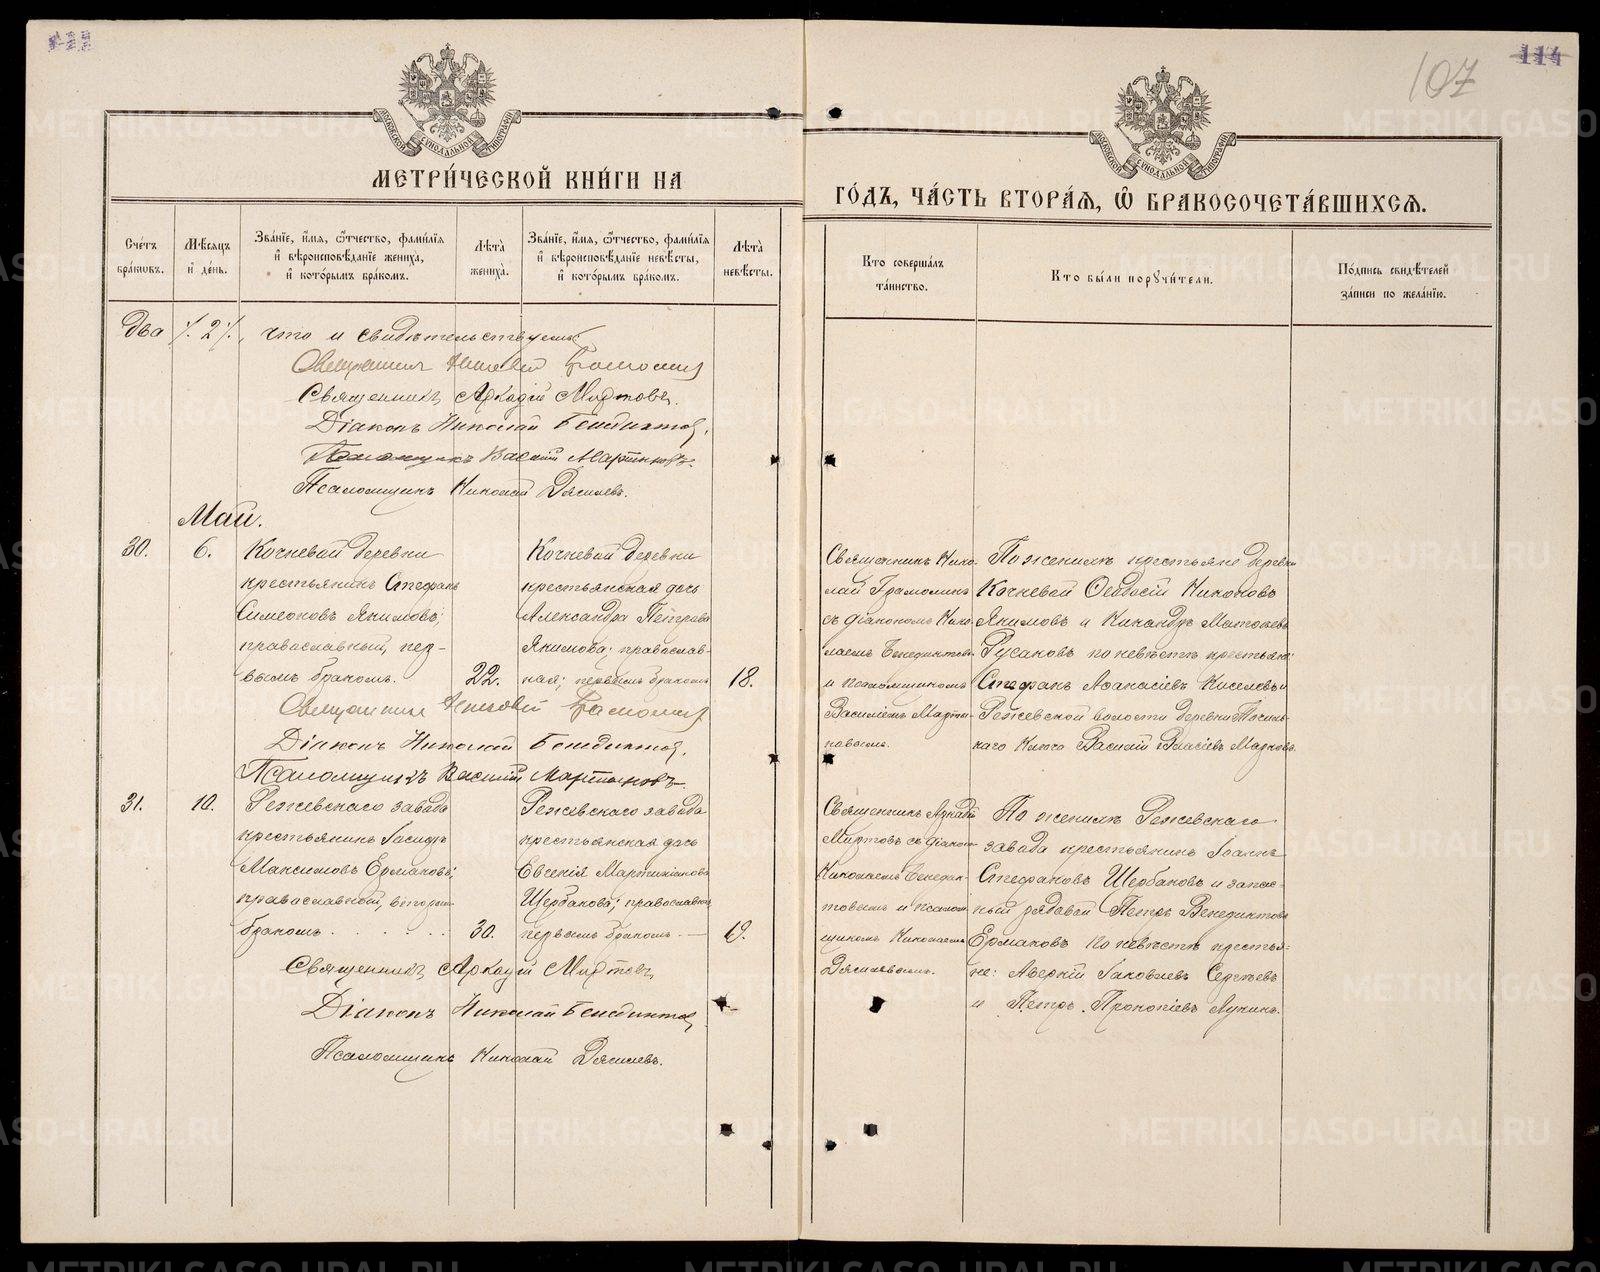 114
107
МОСКОВСКОЙ СѴНОДАЛЬНОЙ ТИПОГРАФІИ
МОСКОВСКОЙ СѴНОДАЛЬНОЙ ТИПОГРАФІИ
МЕТРИ́ЧЕСКОЙ КНИ́ГИ НА
ГО́ДЪ, ЧА́СТЬ ВТОРА́Ѧ, Ѽ БРАКОСОЧЕТА́ВШИХСѦ.
Сче́тъ бра́ковъ.
Мѣ́сѧцъ и҆ де́нь.
Зва́нїе, и҆́мѧ, ѻ҆́тчество, фами́лїѧ и҆ вѣроисповѣ́данїе жениха̀, и҆ кото́рымъ бра́комъ.
Лѣ́та жениха̀.
Зва́нїе, и҆́мѧ, ѻ҆́тчество, фами́лїѧ и҆ вѣроисповѣ́данїе невѣ́сты, и҆ кото́рымъ бра́комъ.
Лѣ́та невѣ́сты.
Кто соверша́лъ та́инство.
Кто бы́ли порꙋчи́тели.
По́дпись свидѣ́телей за́писи по жела́нїю.
два /. 2 /., что и свидѣтельствуемъ
Священникъ Николай Грамолинъ
Священникъ Аркадій Миртовъ.
Діаконъ Николай Бенедиктовъ.
Псаломщикъ Василій Мартыновъ.
Псаломщикъ Николай Дягилевъ.
Май.
30.
6.
Кочневой деревни
крестьянинъ Стефанъ
Симеоновъ Якимовъ;
православный, пер-
вымъ бракомъ.
22.
Кочневой деревни
крестьянская дочь
Александра Петрова
Якимова; православ-
ная; первымъ бракомъ
18.
Священникъ Нико-
лай Грамолинъ
съ діакономъ Нико-
лаемъ Бенедиктов.
и псаломщикомъ
Василіемъ Марты-
новымъ.
По женихѣ крестьяне деревни
Кочневой Ѳеодосій Никоновъ
Якимовъ и Никандръ Матѳеевъ
Русаковъ по невѣстѣ крестьяне:
Стефанъ Аѳанасіевъ Киселевъ и
Режевской волости деревни
Ключа Василій Власіевъ Марковъ.
Священникъ Николай Грамолинъ
Діаконъ Николай Бенедиктовъ.
Псаломщикъ Василій Мартыновъ
31.
10.
Режевскаго завода
крестьянинъ Іосифъ
Максимовъ Ермаковъ;
православный, вторым
бракомъ . . . . . .
30.
Режевскаго завода
крестьянская дочь
Евгенія Мартиніанова
Щербакова; православная
первымъ бракомъ. —
19.
Священникъ Аркадій
Миртовъ съ діакон.
Николаемъ Бенедик-
товымъ и псалом-
щикомъ Николаемъ
Дягилевымъ.
По женихѣ Режевскаго
завода крестьянинъ Іоаннъ
Стефановъ Щербаковъ и запас-
ный рядовой Петръ Венедиктовъ
Ермаковъ по невѣстѣ крестья-
не: Аверкій Іаковлевъ Сергѣевъ
и Петръ Прокопіевъ Лукинъ.
Священникъ Аркадій Миртовъ
Діаконъ Николай Бенедиктовъ
Псаломщикъ Николай Дягилевъ.
METRIKI.GASO-URAL.RU